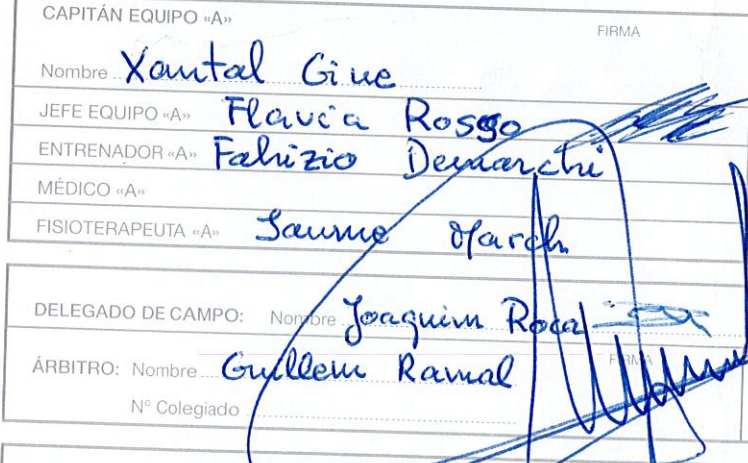 CAPITÁN EQUIPO «A»
FIRMA
Nombre Xantal Gine
JEFE EQUIPO «A» Flavia Rosso
ENTRENADOR «A» Fabrizio Demarchi
MÉDICO «A»
FISIOTERAPEUTA «A» Jaume March
DELEGADO DE CAMPO: Nombre Joaquim Roca
ÁRBITRO: Nombre Guillem Ramal FIRMA
Nº Colegiado